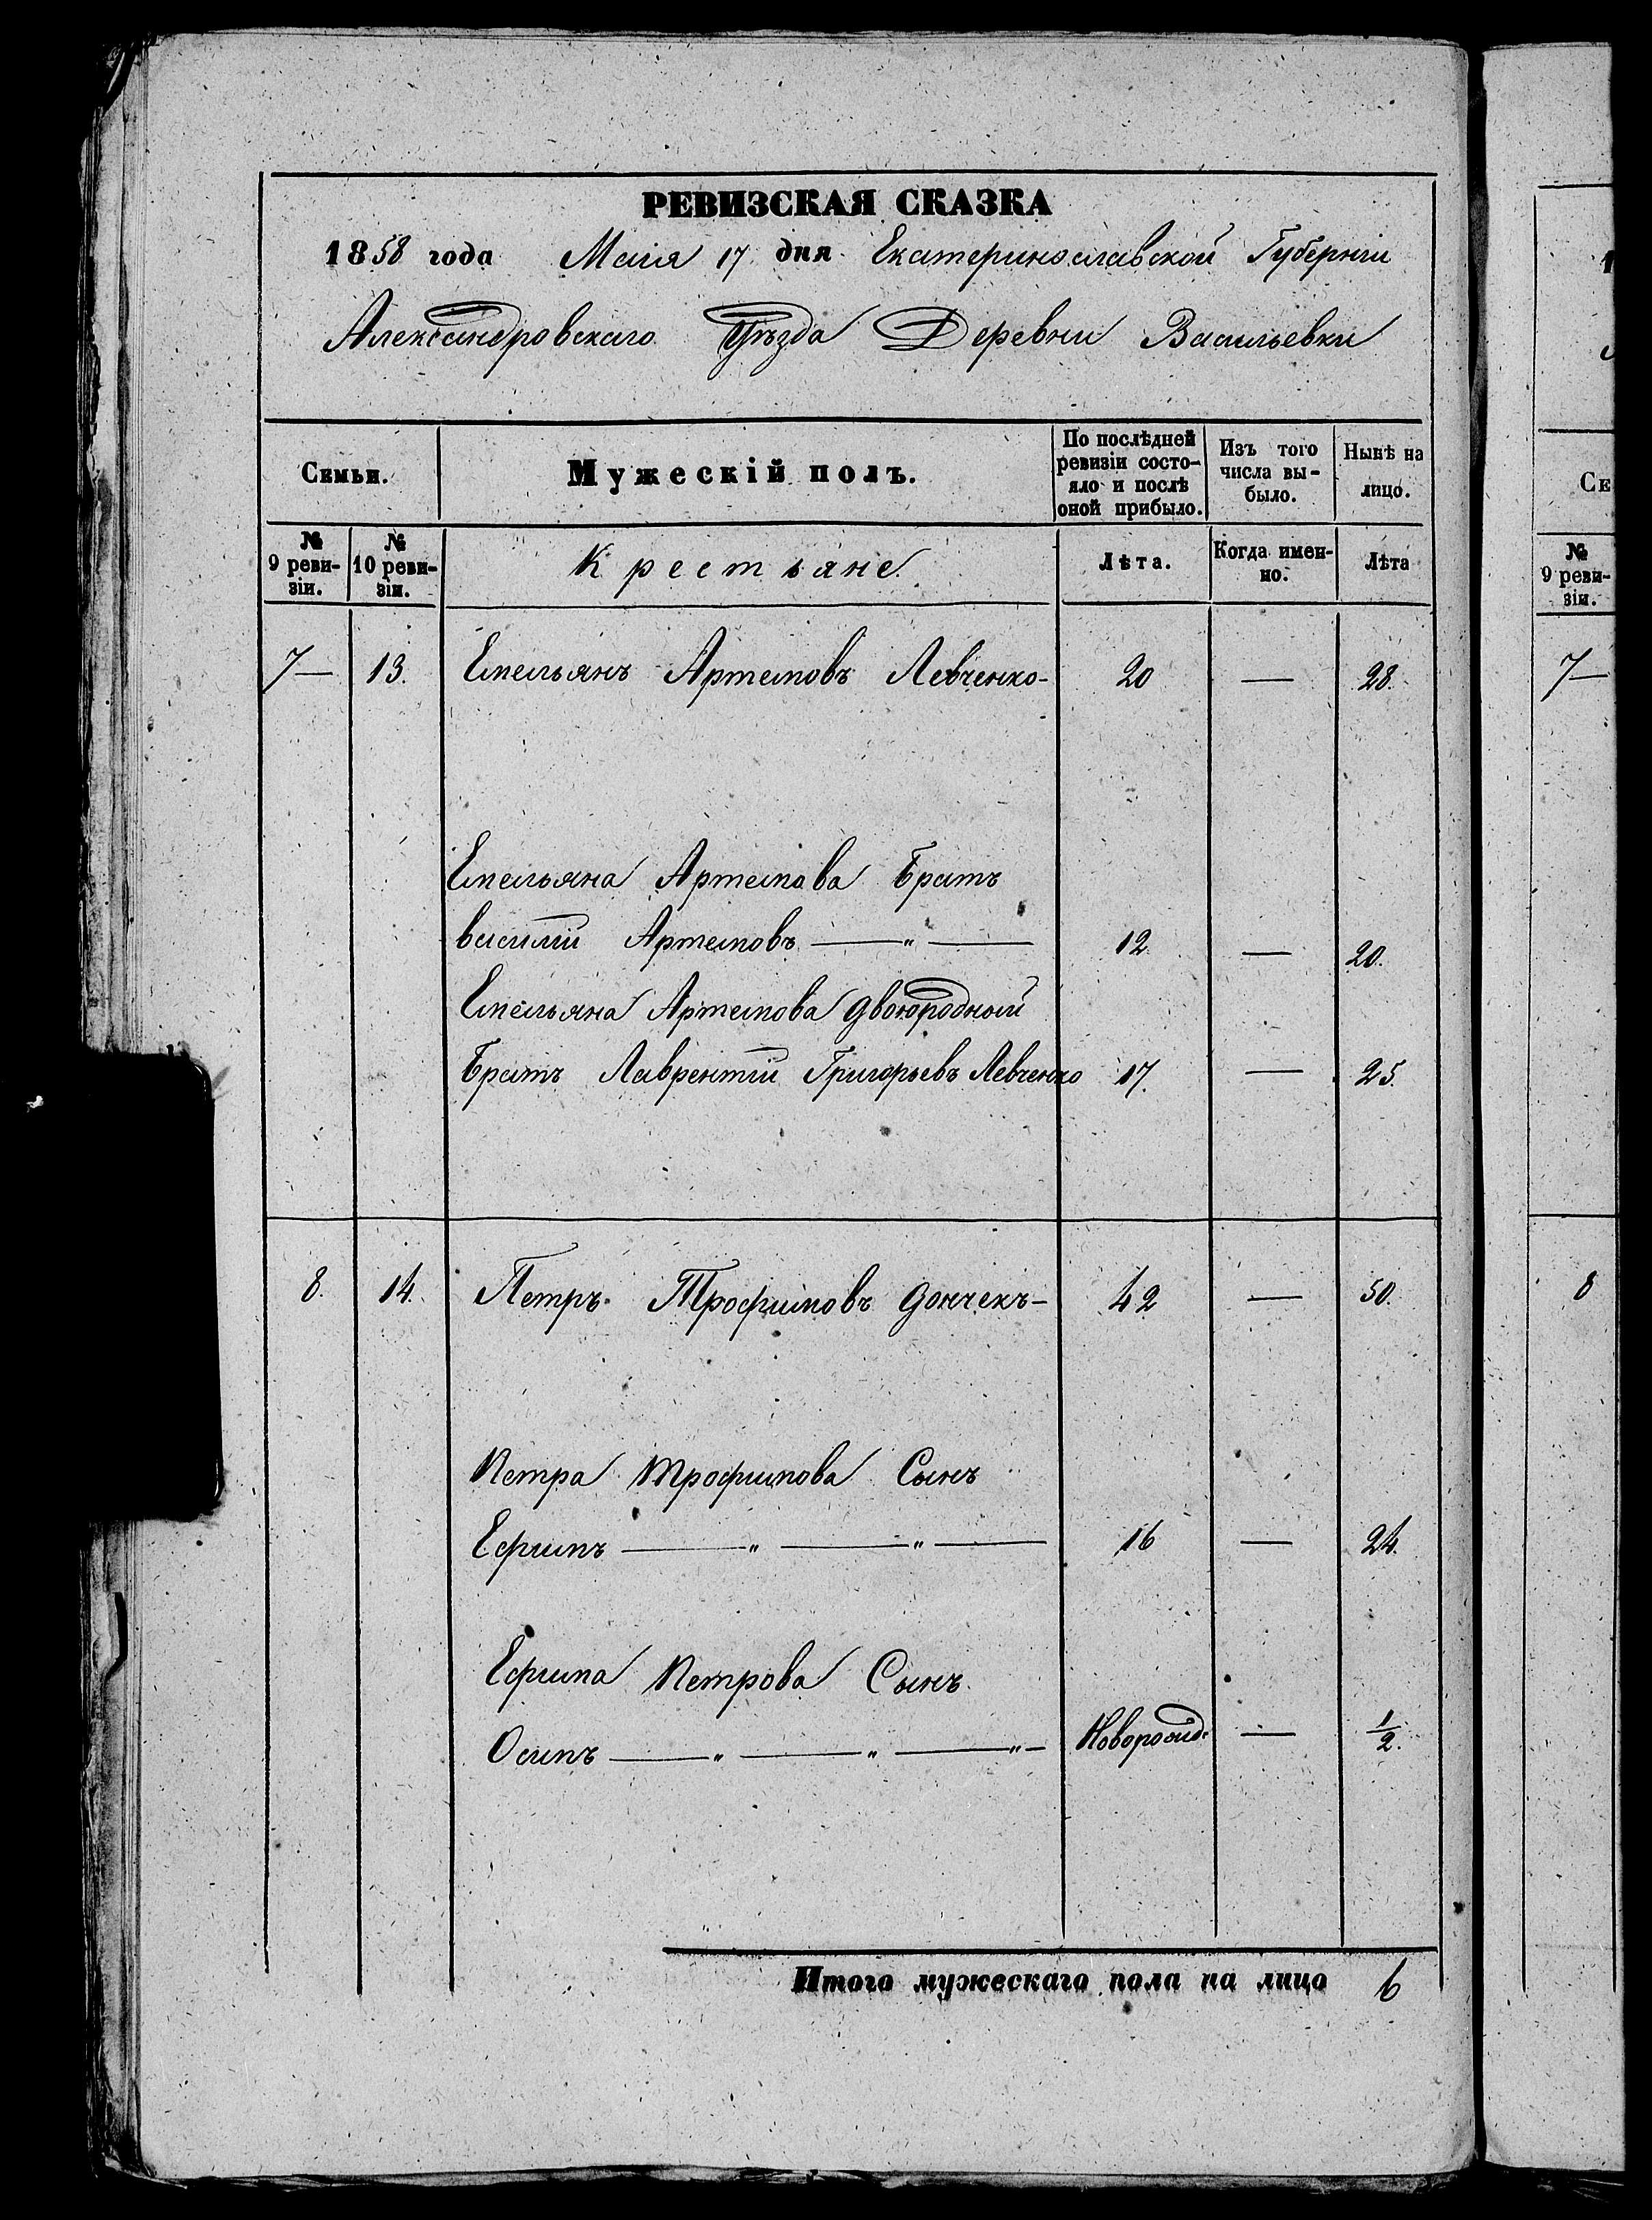 РЕВИЗСКАЯ СКАЗКА
1858 года Маія 17 дня Екатеринославской Губерніи
Александровскаго Уѣзда Деревни Васильевки
Семьи. Мужескій полъ. По послѣдней ревизіи состояло и послѣ оной прибыло. Изъ того числа выбыло. Нынѣ на лицо.
№ 9 ревизіи. № 10 ревизіи. Крестьяне. Лѣта. Когда именно. Лѣта
7— 13. Емельянъ Артемовъ Левченко- 20 — 28.
Емельяна Артемова Братъ
василій Артемовъ —„— 12 — 20.
Емельяна Артемова двоюродный
Братъ Лаврентій Григорьевъ Левченко 17. — 25.
8. 14. Петръ Трофимовъ Дончекъ- 42 — 50.
Петра Трофимова Сынъ
Ефимъ —„—„— 16 — 24.
Ефима Петрова Сынъ
Осипъ —„—„—„— Новорожд: — 1/2.
Итого мужескаго пола на лицо 6
1
Се
№ 9 ревизіи.
7—
8